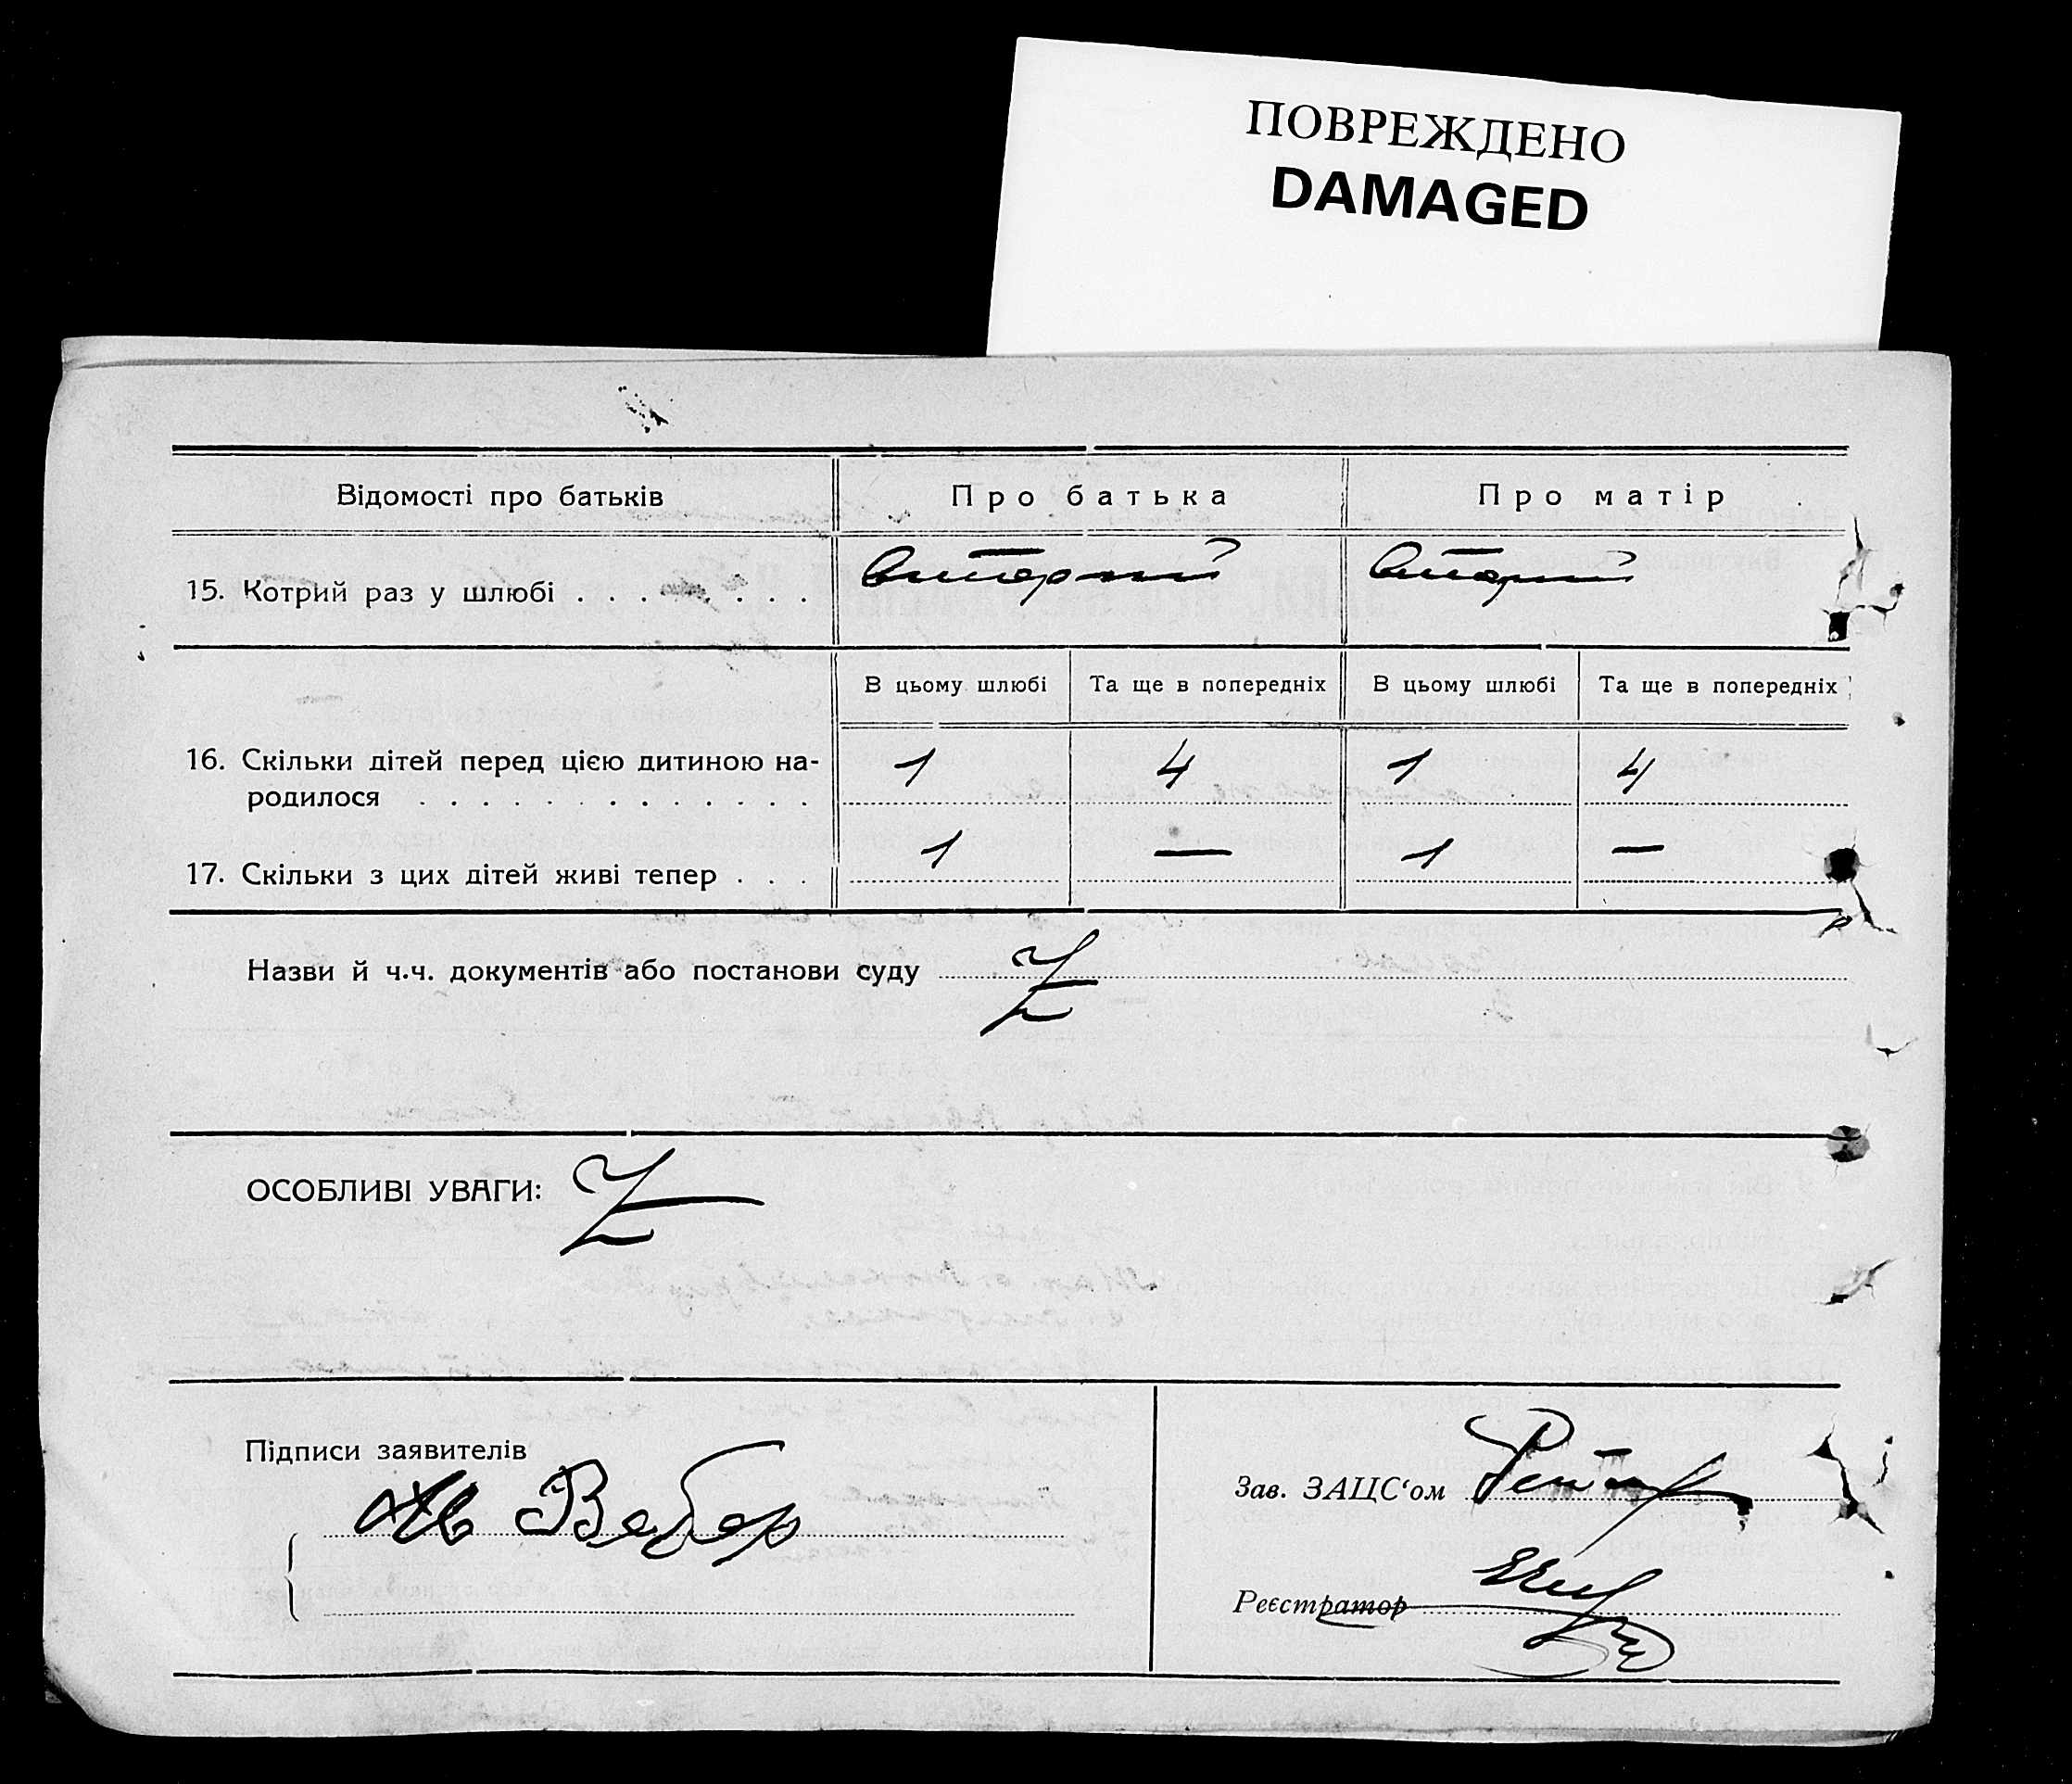 ПОВРЕЖДЕНО
DAMAGED
Відомості про батьків
Про батька
Про матір
15. Котрий раз у шлюбі . . . . . . . .
вторый
вторый
В цьому шлюбі
Та ще в попередніх
В цьому шлюбі
Та ще в попередніх
16. Скільки дітей перед цією дитиною на-
родилося . . . . . . . . . . . . .
1
4
1
4
17. Скільки з цих дітей живі тепер . . .
1
—
1
—
Назви й ч.ч. документів або постанови суду
Z
ОСОБЛИВІ УВАГИ:
Z
Підписи заявителів
Вебер
Зав. ЗАЦС‘ом
Реєстратор